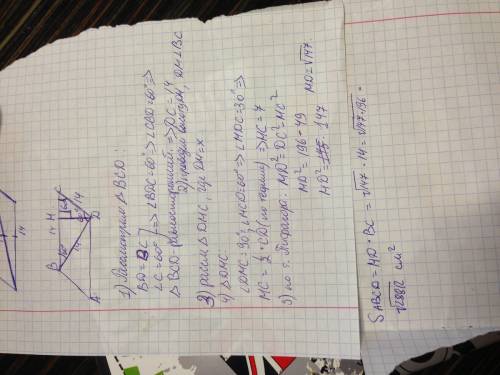 14
B 14 M
60°
14
A D
1) Рассмотрим △ BCD :
BD = BC
∠C = 60° } => ∠BDC = 60° => ∠CBD = 60° =>
△ BCD равносторонний => DC = 14
2) проведем высоту, DM ⊥ BC
3) рассм. △ DMC, где DM = x
4) △ DMC:
∠DMC = 90°, ∠MCD = 60° => ∠MDC = 30° =>
MC = ½ · CD (по теореме) => MC = 7
5) по т. Пифагора: MD² = DC² - MC²
MD² = 196 - 49
MD² = 147 MD = √147
S ABCD = MD · BC = √147 · 14 = √147·196 =
√28812 см²